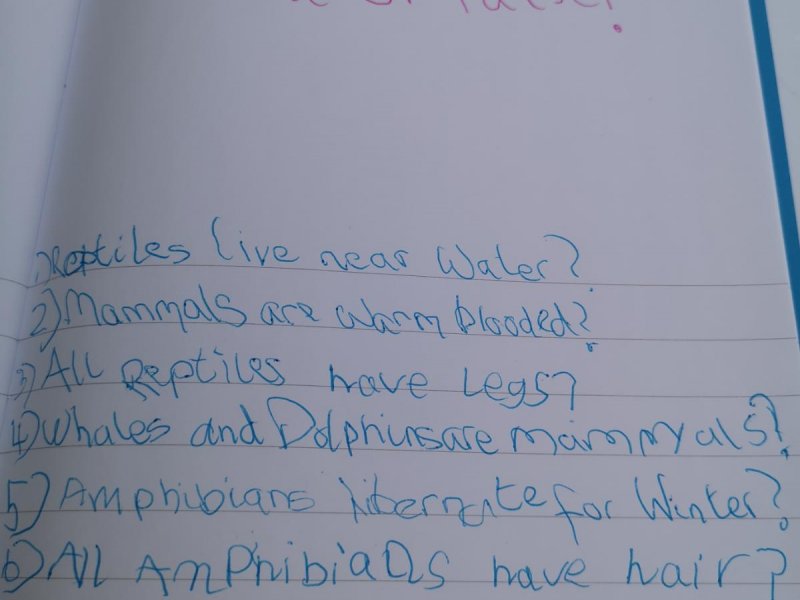 or false?
1)Reptiles live near Water?
2)Mammals are warm blooded?
3)All Reptiles have Legs?
4)Whales and Dolphins are mammyals?
5)Amphibians hibernate for Winter?
6)All Amphibians have hair?